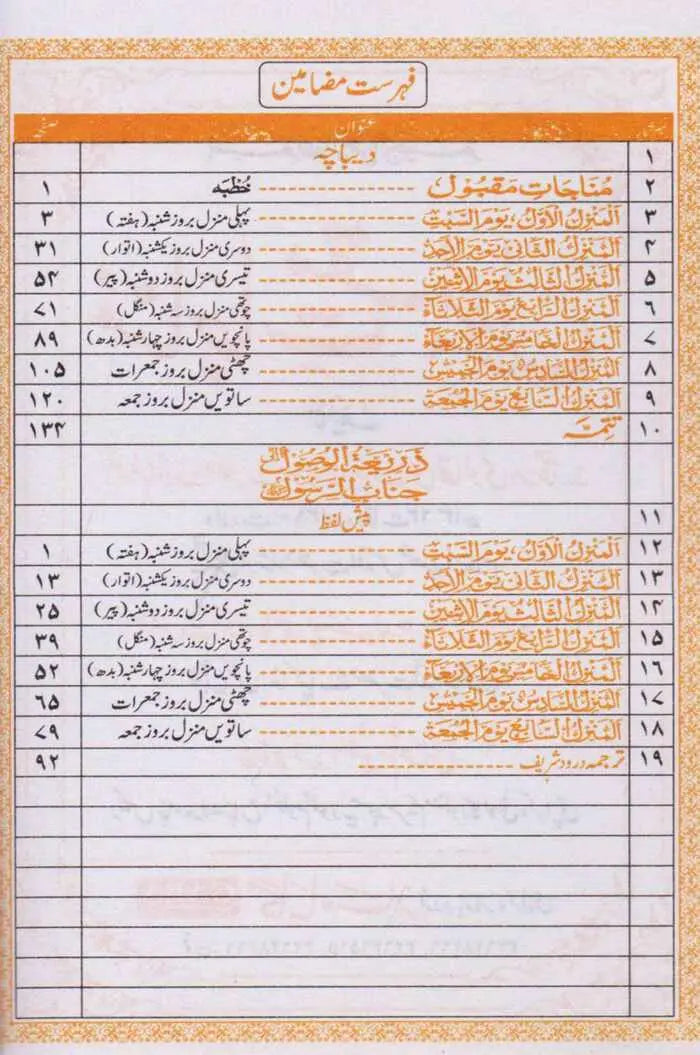 فہرست مضامین
عنوان صفحہ
۱ دیباچہ
۲ مُنَاجَاتِ مَقبُول خُطبَہ ۱
۳ اَلمَنزِلُ الاَوَّلُ، یَومَ السَّبتِ پہلی منزل بروز شنبہ (ہفتہ) ۳
۴ اَلمَنزِلُ الثَّانِی یَومَ الاَحَدِ دوسری منزل بروز یکشنبہ (اتوار) ۳۱
۵ اَلمَنزِلُ الثَّالِثُ یَومَ الاِثنَینِ تیسری منزل بروز دوشنبہ (پیر) ۵۴
۶ اَلمَنزِلُ الرَّابِعُ یَومَ الثَّلَاثَاءِ چوتھی منزل بروز سہ شنبہ (منگل) ۷۱
۷ اَلمَنزِلُ الخَامِسُ یَومَ الاَربِعَاءِ پانچویں منزل بروز چہار شنبہ (بدھ) ۸۹
۸ اَلمَنزِلُ السَّادِسُ یَومَ الخَمِیسِ چھٹی منزل بروز جمعرات ۱۰۵
۹ اَلمَنزِلُ السَّابِعُ یَومَ الجُمُعَةِ ساتویں منزل بروز جمعہ ۱۲۰
۱۰ تتمہ ۱۳۴
ذَرِیعَةُ الوُصُول اِلٰی
جَنَابِ الرَّسُول ﷺ
۱۱ پیش لفظ
۱۲ اَلمَنزِلُ الاَوَّلُ، یَومَ السَّبتِ پہلی منزل بروز شنبہ (ہفتہ) ۱
۱۳ اَلمَنزِلُ الثَّانِی یَومَ الاَحَدِ دوسری منزل بروز یکشنبہ (اتوار) ۱۳
۱۴ اَلمَنزِلُ الثَّالِثُ یَومَ الاِثنَینِ تیسری منزل بروز دوشنبہ (پیر) ۲۵
۱۵ اَلمَنزِلُ الرَّابِعُ یَومَ الثَّلَاثَاءِ چوتھی منزل بروز سہ شنبہ (منگل) ۳۹
۱۶ اَلمَنزِلُ الخَامِسُ یَومَ الاَربِعَاءِ پانچویں منزل بروز چہار شنبہ (بدھ) ۵۲
۱۷ اَلمَنزِلُ السَّادِسُ یَومَ الخَمِیسِ چھٹی منزل بروز جمعرات ۶۵
۱۸ اَلمَنزِلُ السَّابِعُ یَومَ الجُمُعَةِ ساتویں منزل بروز جمعہ ۷۹
۱۹ ترجمہ درود شریف ۹۲